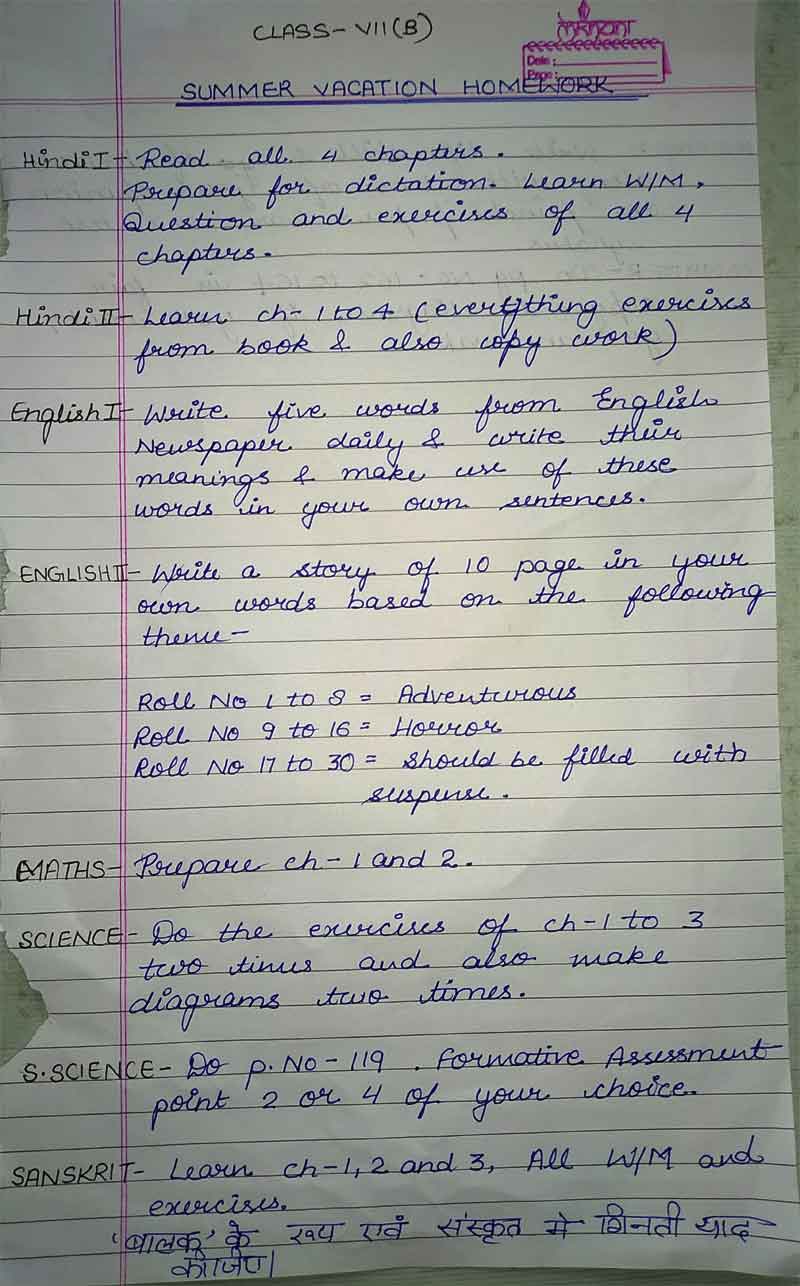 CLASS - VII (B)
Date :
Page :
SUMMER VACATION HOMEWORK
Hindi I - Read all 4 chapters.
Prepare for dictation. Learn W/M,
Question and exercises of all 4
chapters.
Hindi II - Learn ch - 1 to 4 (everything exercises
from book & also copy work)
English I - Write five words from English
Newspaper daily & write their
meanings & make use of these
words in your own sentences.
ENGLISH II - Write a story of 10 page in your
own words based on the following
theme -
Roll No 1 to 8 = Adventurous
Roll No 9 to 16 = Horror
Roll No 17 to 30 = should be filled with
suspense.
MATHS - Prepare ch - 1 and 2.
SCIENCE - Do the exercises of ch - 1 to 3
two times and also make
diagrams two times.
S. SCIENCE - Do p. No - 119. Formative Assessment
point 2 or 4 of your choice.
SANSKRIT - Learn ch - 1, 2 and 3, All W/M and
exercises.
'बालक' के रूप एवं संस्कृत मे गिनती याद
कीजिए।